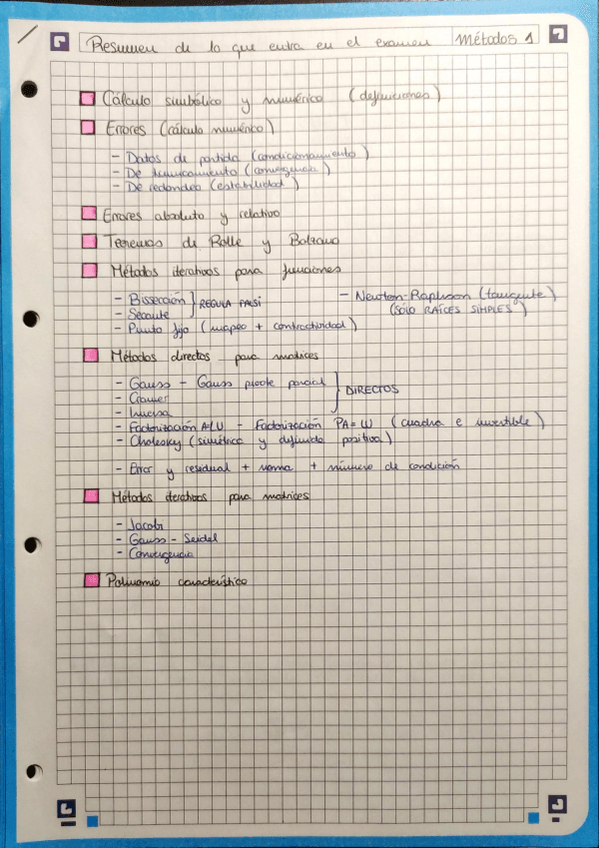 Resumen de lo que entra en el examen Métodos 1
Cálculo simbólico y numérico (definiciones)
Errores (cálculo numérico)
- Datos de partida (condicionamiento)
- De truncamiento (convergencia)
- De redondeo (estabilidad)
Errores absoluto y relativo
Teoremas de Rolle y Bolzano
Métodos iterativos para funciones
- Bissección } REGULA FALSI
- Secante
- Punto fijo (mapeo + contractividad)
- Newton-Raphson (tangente)
(SÓLO RAÍCES SIMPLES)
Métodos directos para matrices
- Gauss - Gauss pivote parcial } DIRECTOS
- Cramer
- Inversa
- Factorización A=LU - Factorización PA=LU (cuadra e invertible)
- Cholesky (simétrica y definida positiva)
- Error y residual + norma + número de condición
Métodos iterativos para matrices
- Jacobi
- Gauss - Seidel
- Convergencia
Polinomio característico